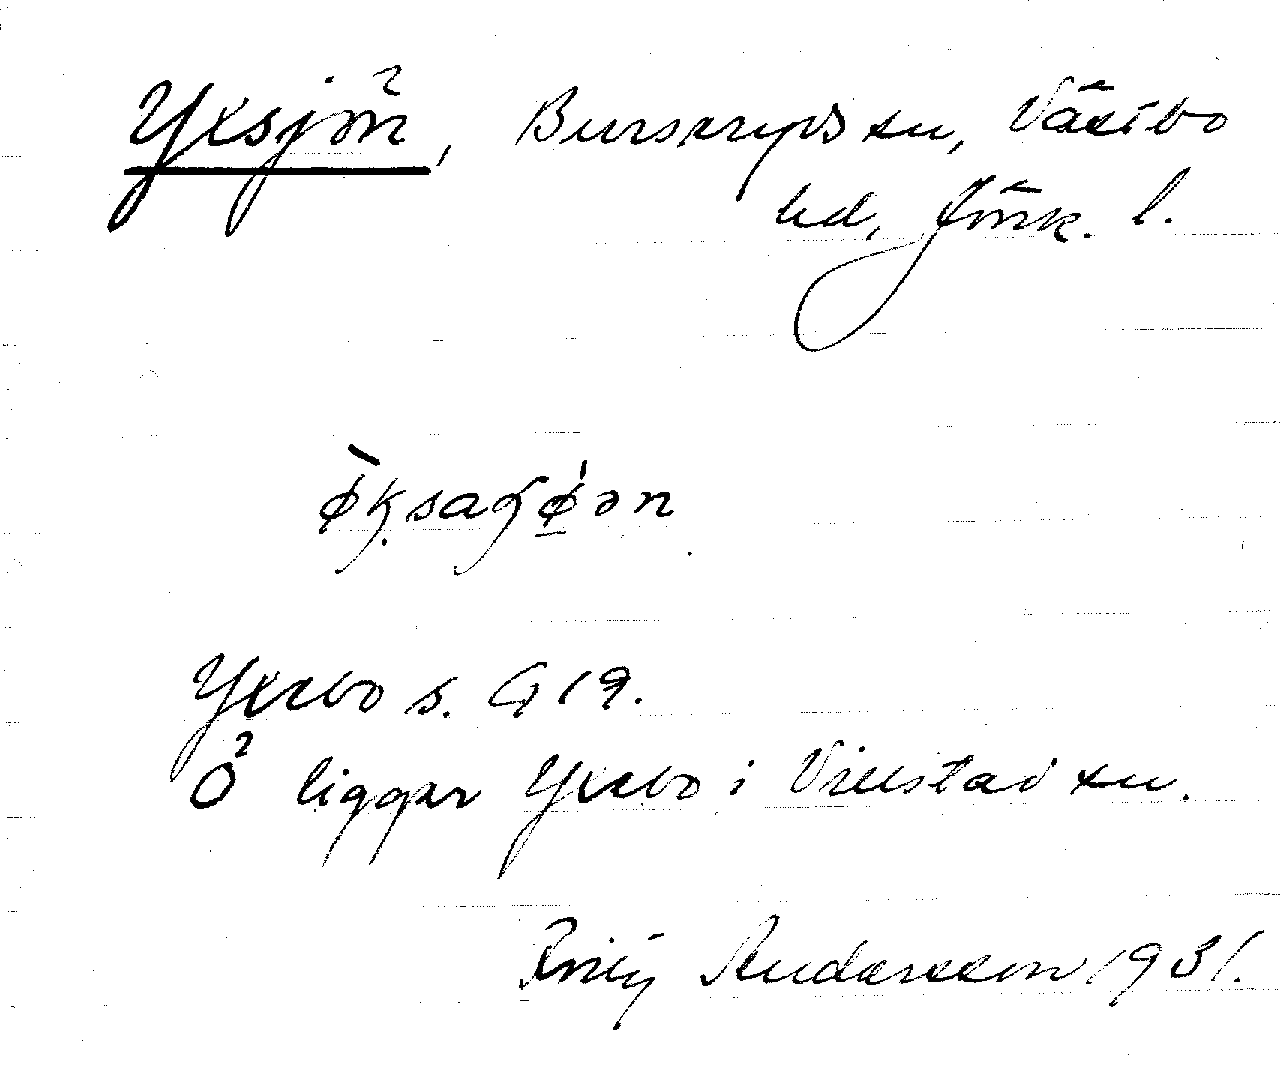 Yxsjön, Burseryds sn, Västbo
hd, Jönk. l.
Yxebo s. G 19.
O² liggar Yxebo i Villstad sn.
Andersson 1931.